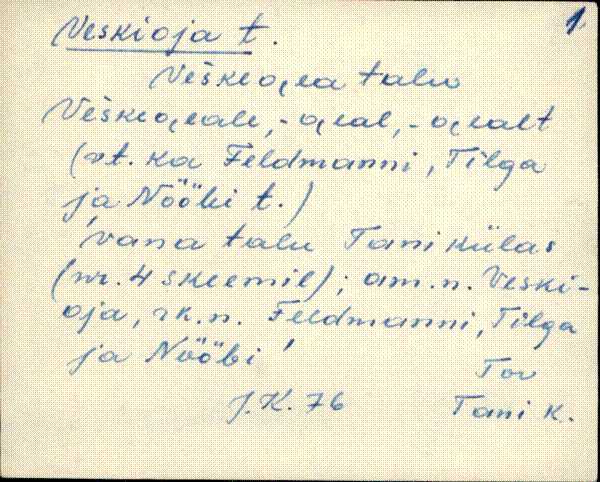 1
Veskioja t.
Veškeo̬i̯a talu
Veškeo̬i̯ale, -o̬i̯al, -o̬i̯alt
(vt. ka Feldmanni, Tilga
ja Nööbi t.)
'vana talu Tani külas
(nr. 4 skeemil); am.n. Veski-
oja, rk.n. Feldmanni, Tilga
ja Nööbi'
Tor
J.K. 76 Tani k.